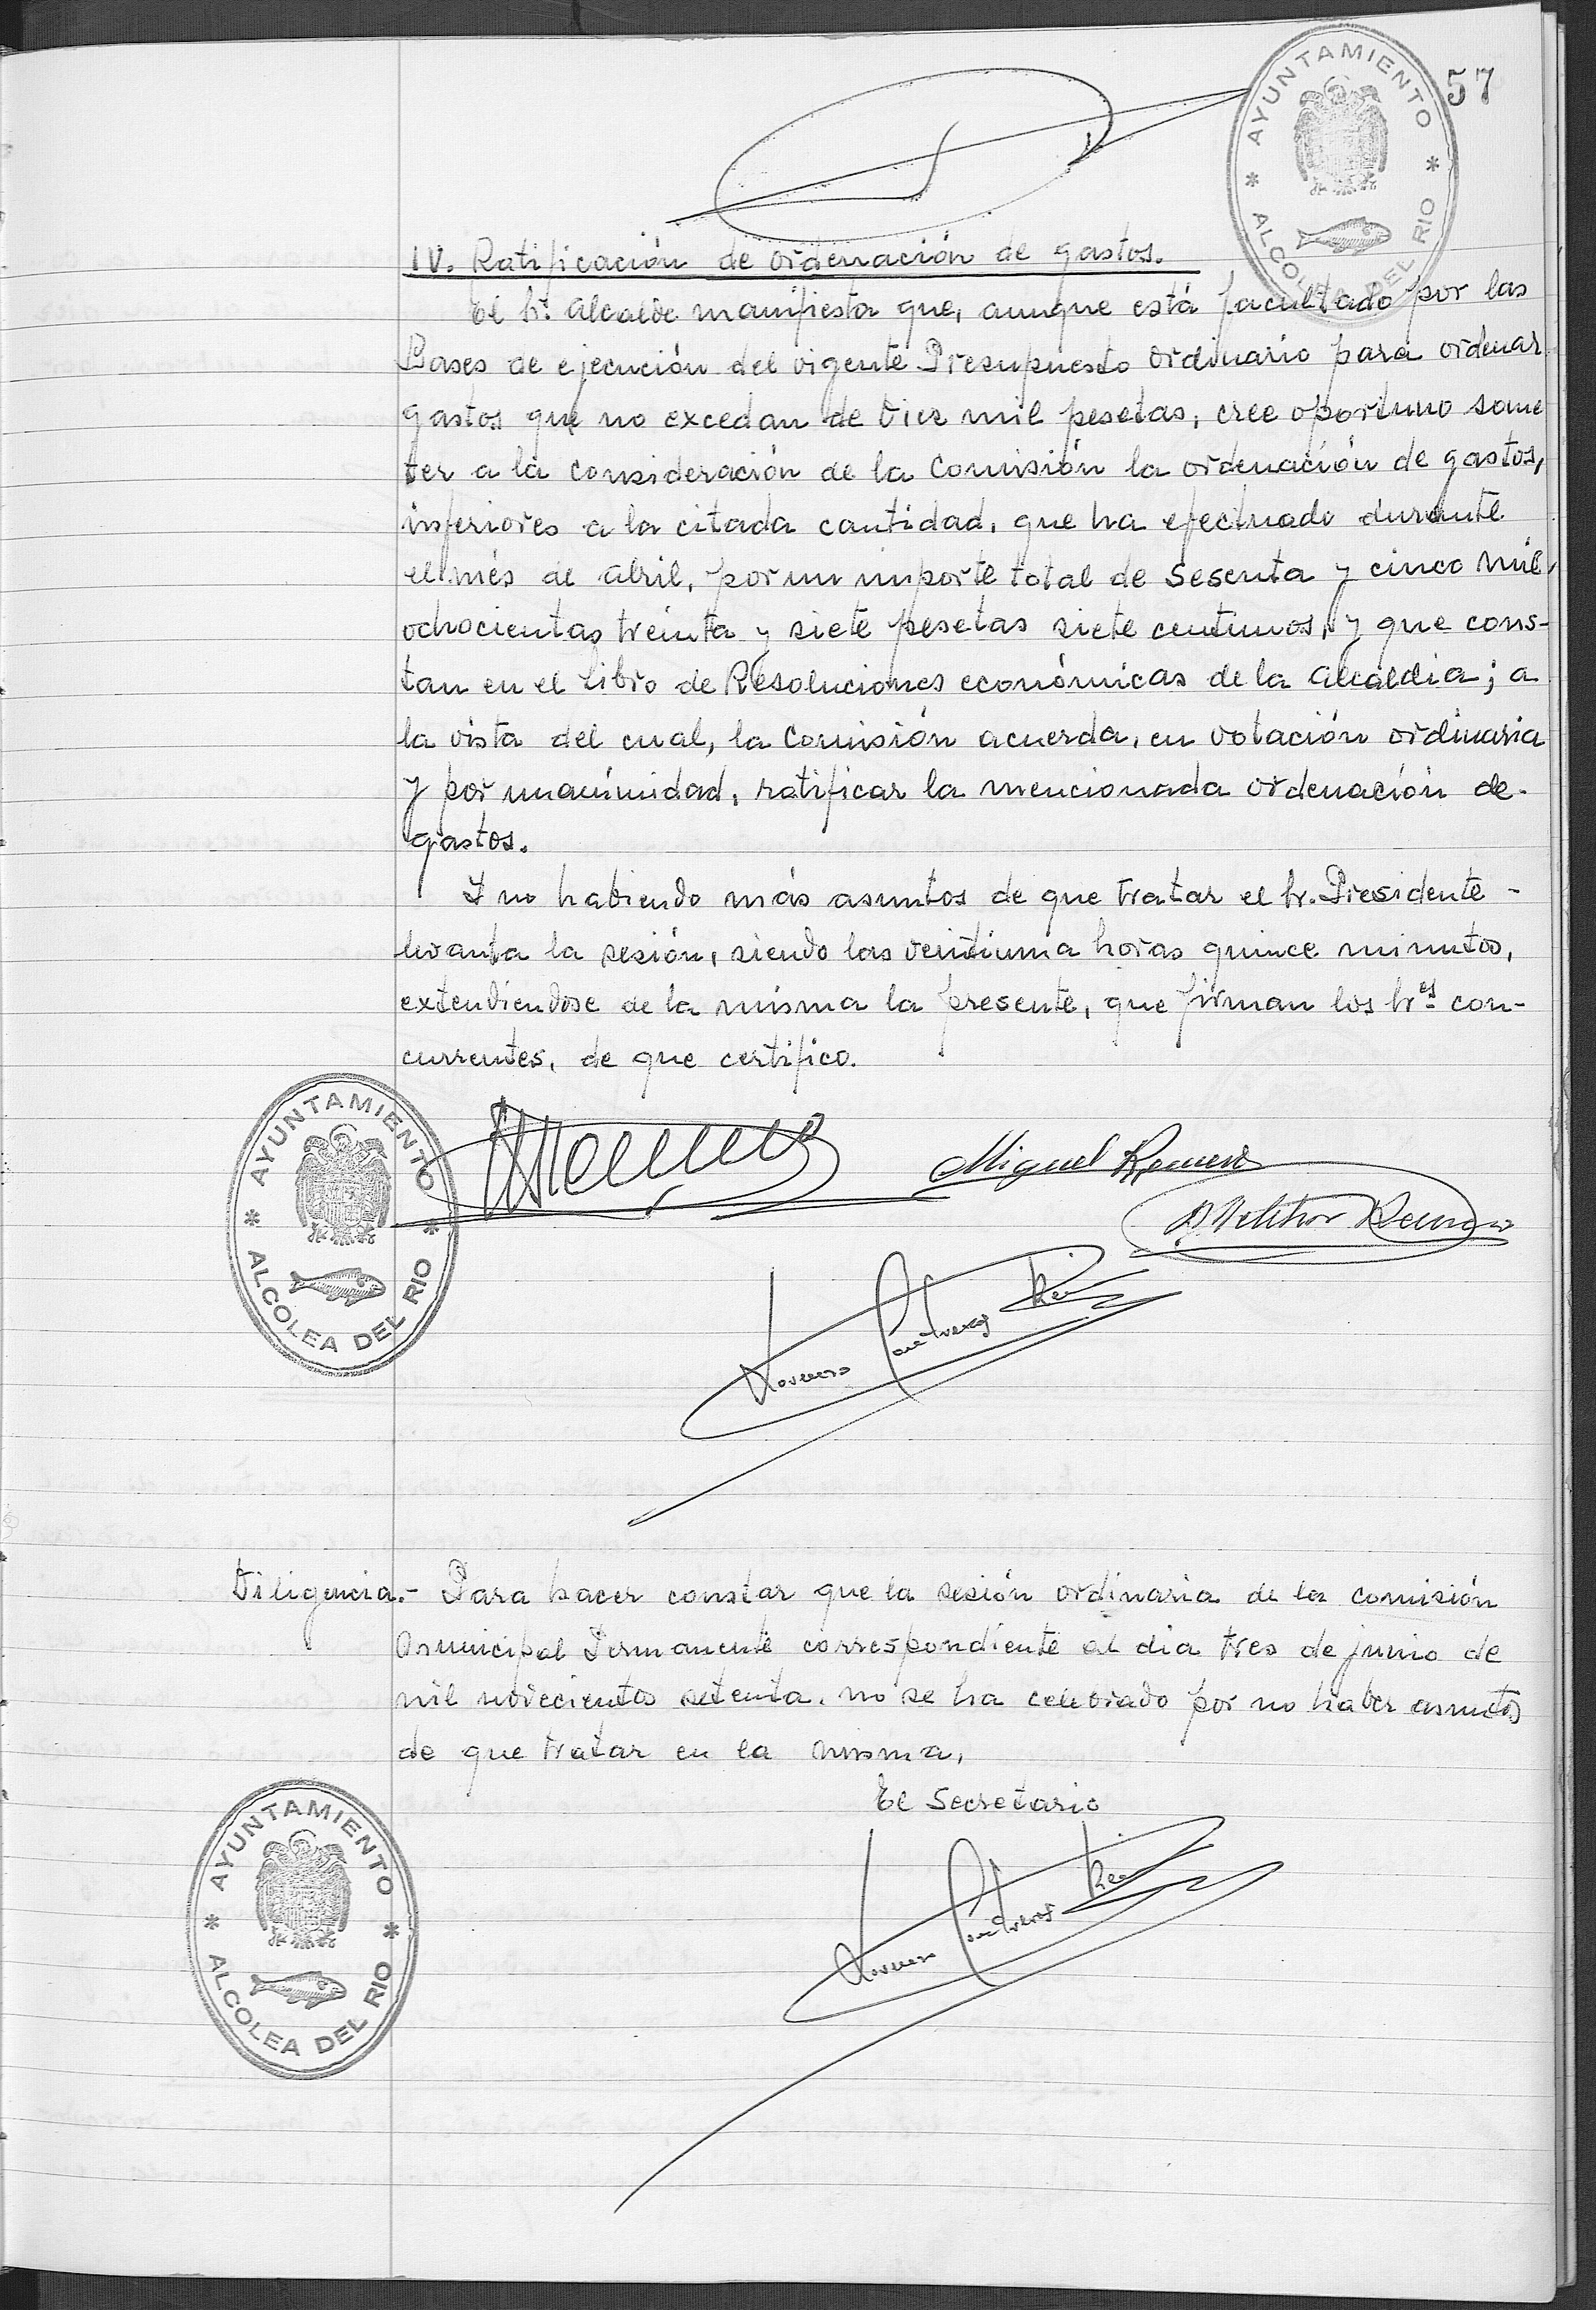 57
AYUNTAMIENTO * ALCOLEA DEL RIO *
IV. Ratificación de ordenación de gastos.
El Sr. Alcalde manifiesta que, aunque está facultado por las
Bases de ejecución del vigente Presupuesto ordinario para ordenar
gastos que no excedan de diez mil pesetas, cree oportuno some
ter a la consideración de la Comisión la ordenación de gastos,
inferiores a la citada cantidad, que ha efectuado durante
el mes de abril, por un importe total de sesenta y cinco mil,
ochocientas treinta y siete pesetas siete centimos, y que cons-
tan en el Libro de Resoluciones económicas de la Alcaldia; a
la vista del cual, la Comisión acuerda, en votación ordinaria
y por unanimidad, ratificar la mencionada ordenación de-
gastos.
Y no habiendo más asuntos de que tratar el Sr. Presidente -
levanta la sesión, siendo las veintiuna horas quince minutos,
extendiendose de la misma la presente, que firman los Sres con-
currentes, de que certifico.
AYUNTAMIENTO * ALCOLEA DEL RIO *
Miguel Romero
Melchor Romero
Diligencia.- Para hacer constar que la sesión ordinaria de la comisión
municipal Permanente correspondiente al dia tres de junio de
mil novecientos setenta, no se ha celebrado por no haber asuntos
de que tratar en la misma,
El Secretario
AYUNTAMIENTO * ALCOLEA DEL RIO *